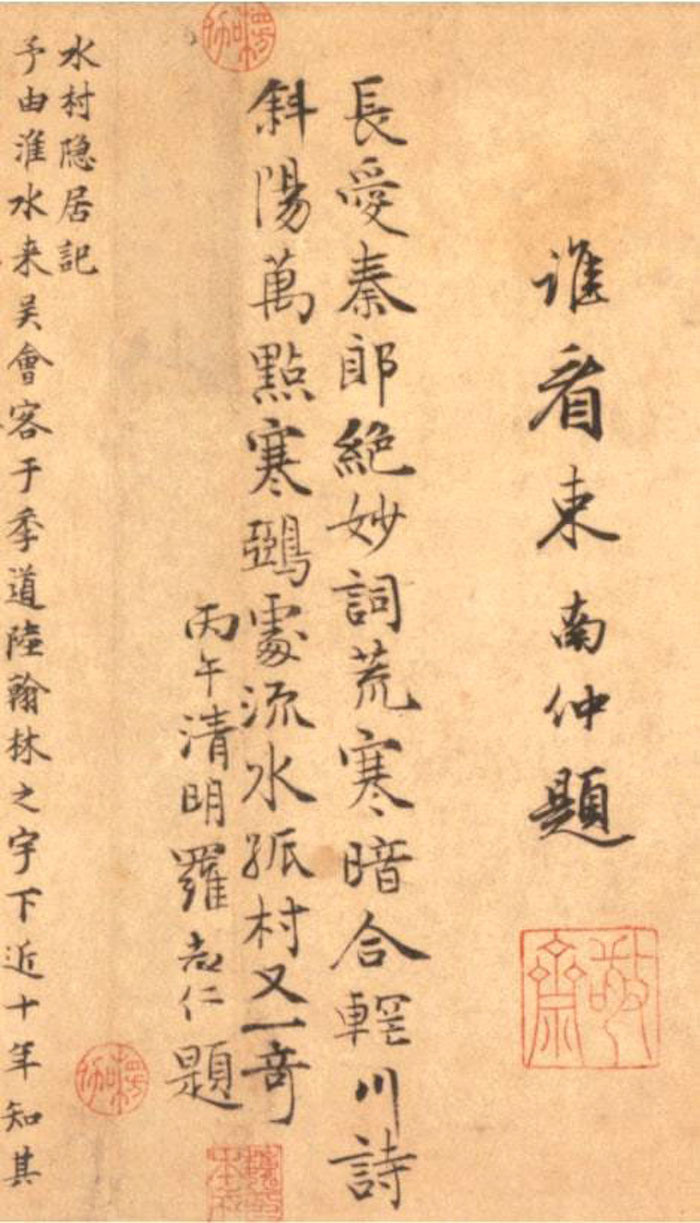 誰看東南仲題
敬齋
長愛秦郎絶妙詞荒寒暗合輞川詩
斜陽萬點寒鵶處流水孤村又一竒
丙午清明羅志仁題
水村隐居記
予由淮水来吴會客于季道陸翰林之宇下近十年知其